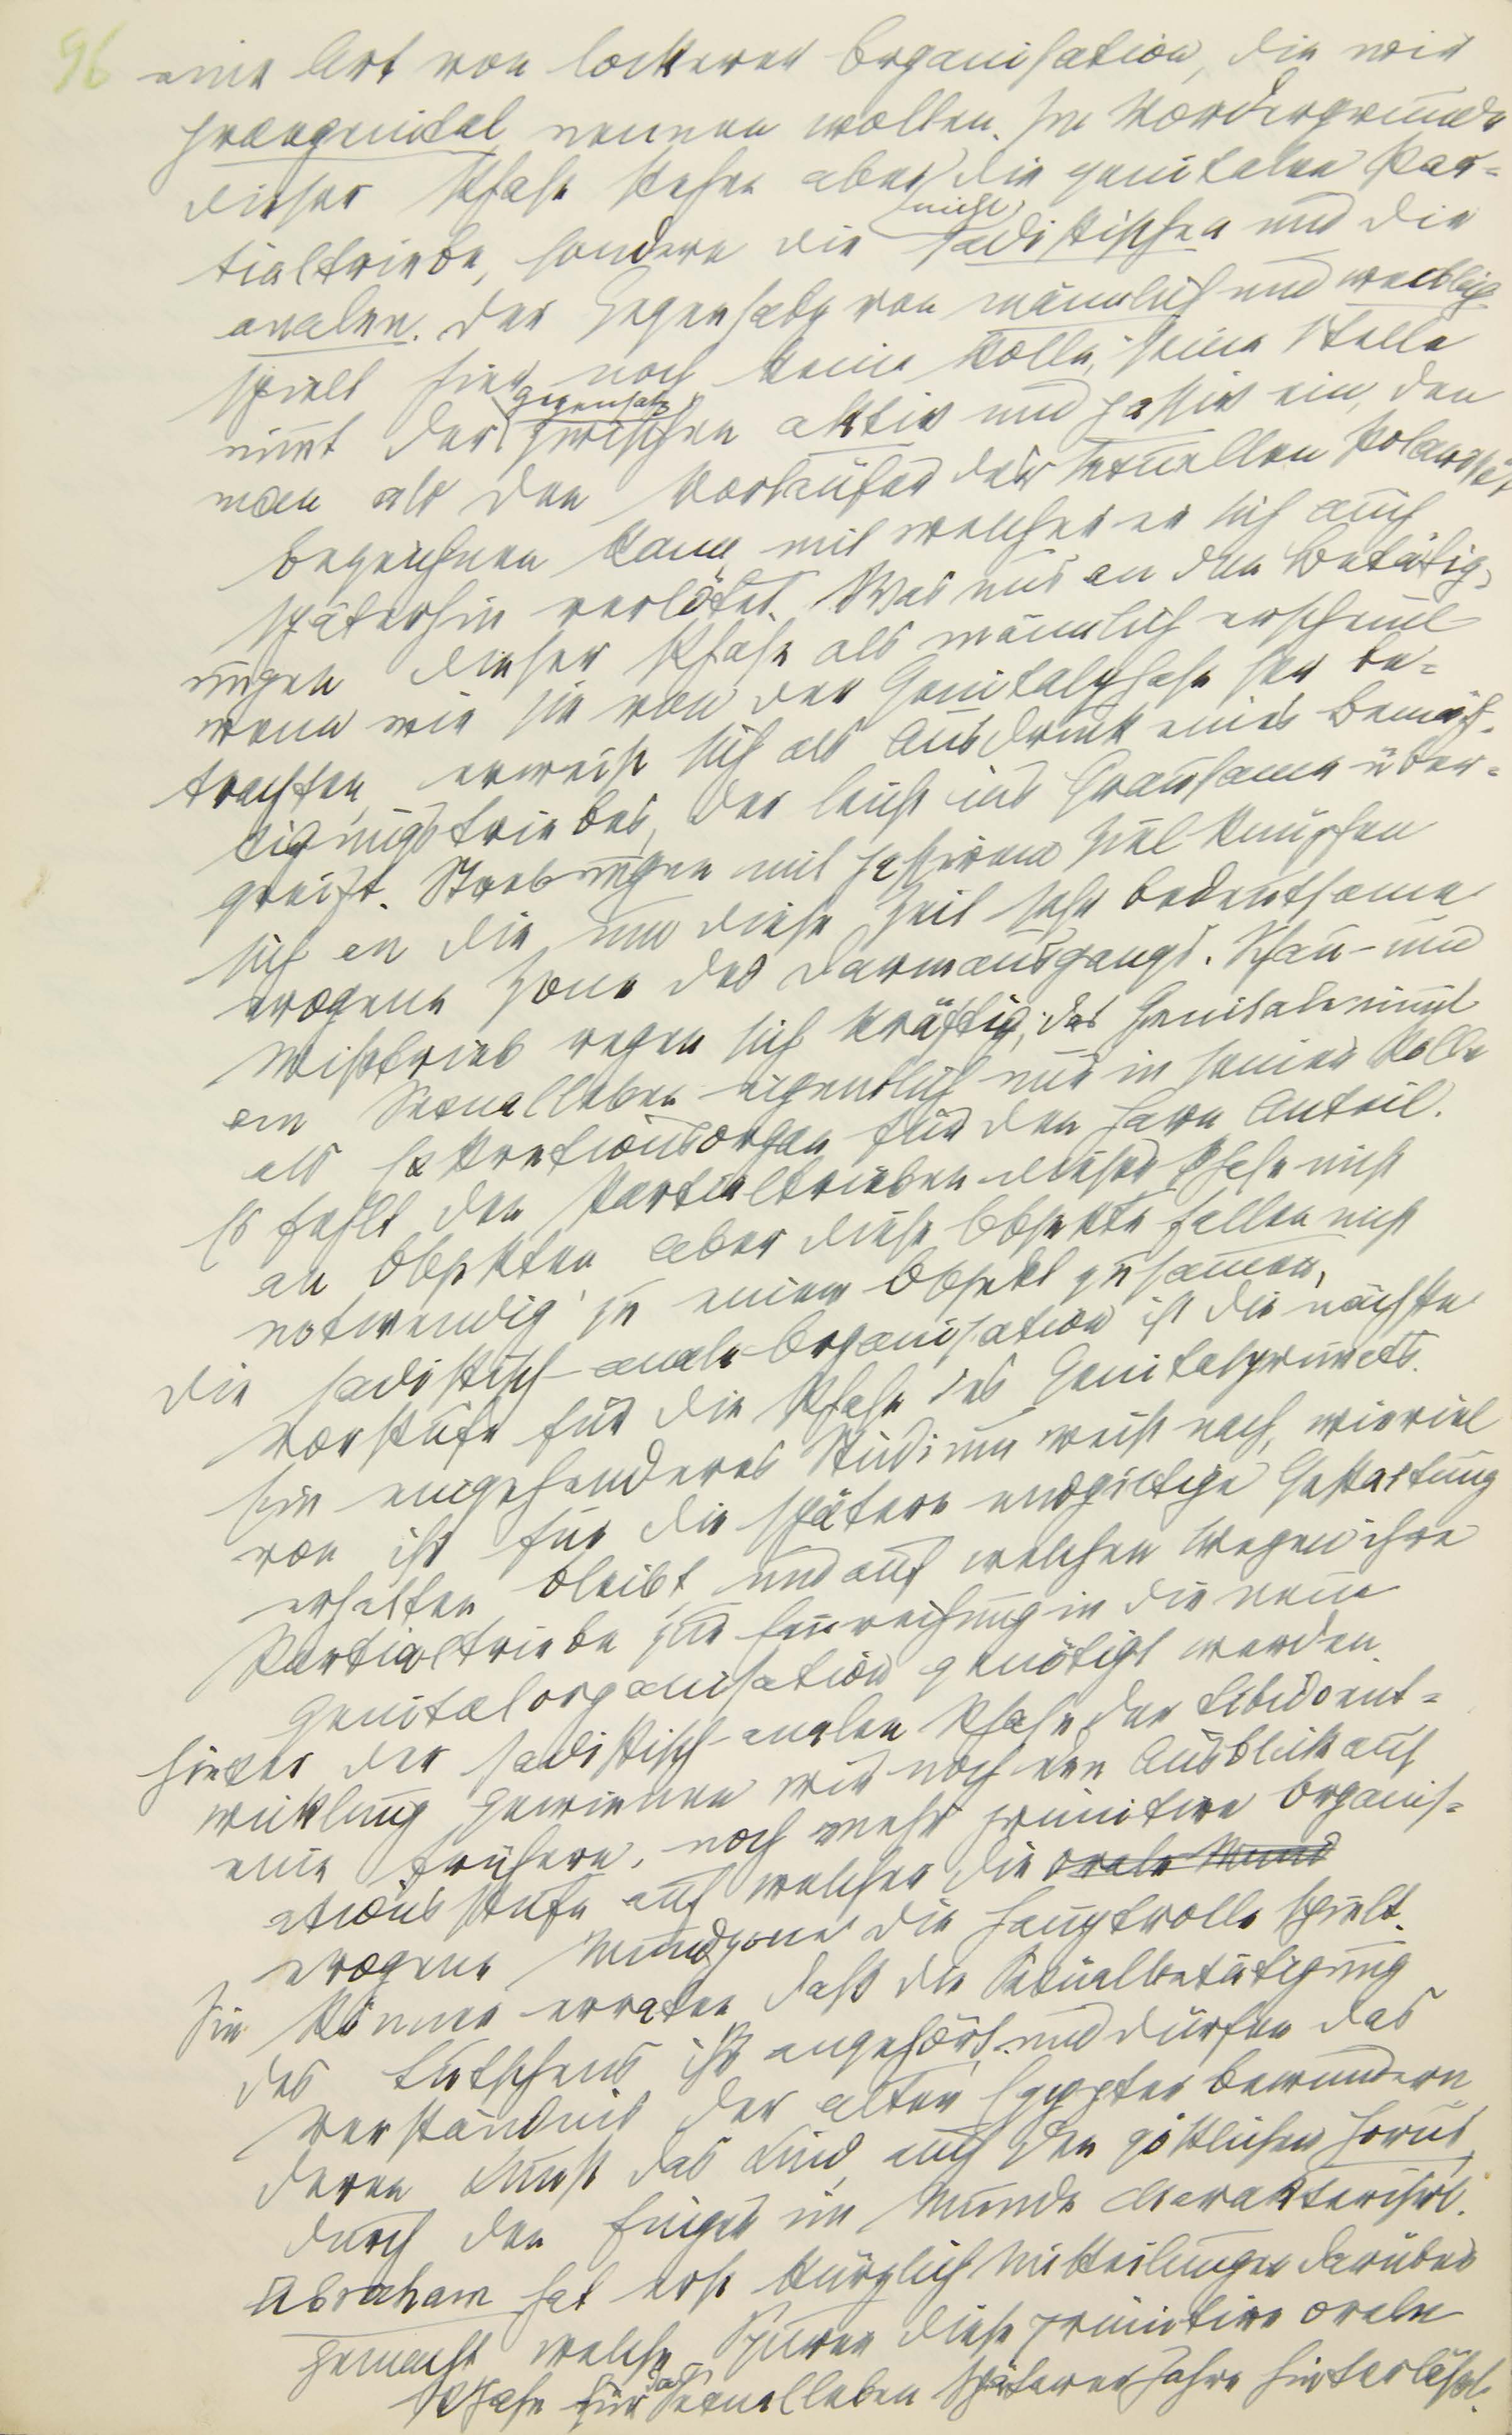 96
eine Art von lockerer Organisation, die wir
praegenital nennen wollen. Im Vordergrunde
dieser Phase stehen aber die genitalen Par=
nicht
tialtriebe, sondern die sadistischen und die
analen. Der Gegensatz von männlich und weiblich
spielt hier noch keine Rolle, seine Stelle
Gegensatz
nimt der zwischen aktiv und passiv ein, den
man als den Vorläufer der sexuellen Polarität
bezeichnen kann, mit welcher er sich auch
späterhin verlötet. Was uns an den Betätig=
ungen dieser Phase als männlich erscheint
wenn wir sie von der Genitalphase her be=
trachten, erweist sich als Ausdruck eines Bemäch=
tigungstriebes, der leicht ins Grausame über=
greift. Strebungen mit passivem Ziel knüpfen
sich an die um diese Zeit sehr bedeutsame
erogene Zone des Darmausgangs. Schau- und
Wißtrieb regen sich kräftig; das Genitale nimt
am Sexualleben eigentlich nur in seiner Rolle
als Exkretionsorgan für den Harn Anteil.
Es fehlt den Partialtrieben dieser Phase nicht
an Objekten aber diese Objekte fallen nicht
notwendig zu einem Objekt zusamen.
Die sadistisch-anale Organisation ist die nächste
Vorstufe für die Phase des Genitalprimats.
Ein eingehenderes Studium weist nach, wieviel
von ihr für die spätere endgiltige Gestaltung
erhalten bleibt und auf welchen Wegen ihre
Partialtriebe zur Einreihung in die neue
Genitalorganisation genötigt werden.
Hinter der sadistisch-analen Phase der Libidoent=
wicklung gewinnen wir noch den Ausblick auf
eine frühere, noch mehr primitive Organis=
ationsstufe auf welcher die orale Mund
erogene Mundzone die Hauptrolle spielt.
Sie können erraten daß die Sexualbetätigung
des Lutschens ihr angehört und dürfen das
Verständnis der alten Egypter bewundern
deren Kunst das Kind, auch den göttlichen Horus,
durch den Finger im Munde charakterisirt.
Abraham hat erst kürzlich Mitteilungen darüber
gemacht welche Spuren diese primitive orale
das
Phase für Sexualleben späterer Jahre hinterläßt.